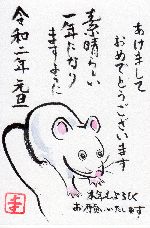 あけまして
おめでとうございます
素晴らしい
一年になり
ますように
令和二年 元旦
本年もよろしく
お願いいたします